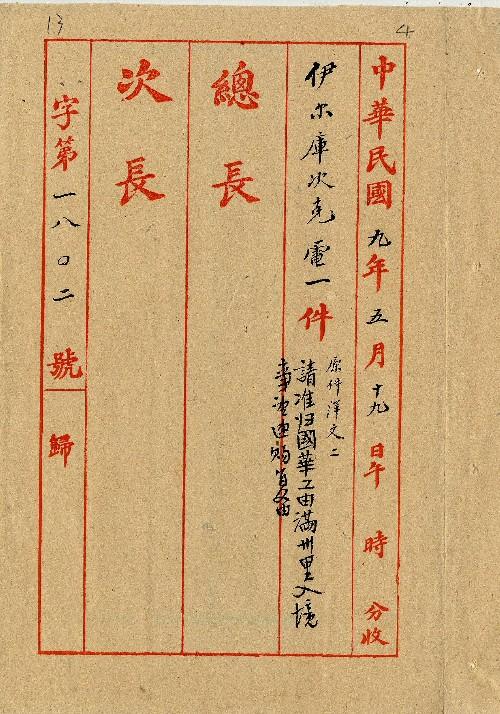 4
13
中華民國九年五月十九日午 時 分收
伊尔庫次克電一件
原件洋文二
請准归國華工由滿州里入境
事並迅賜
總長
次長
字第一八〇二號 歸